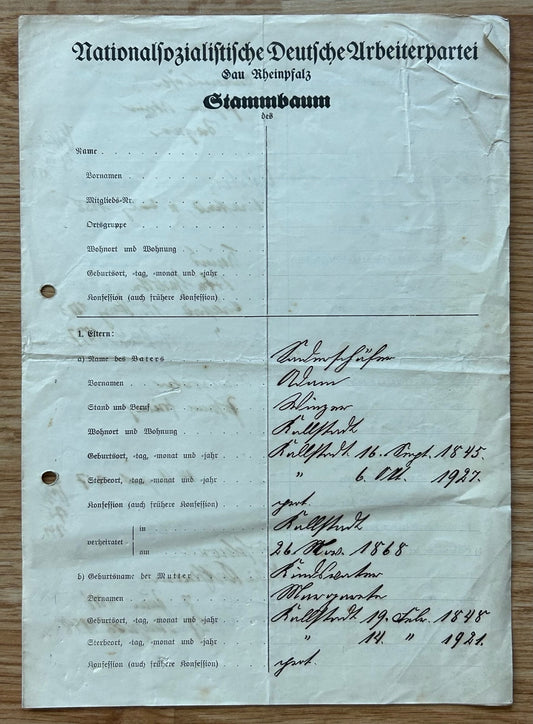 Nationalsozialistische Deutsche Arbeiterpartei
Gau Rheinpfalz
Stammbaum
des
Name
Vornamen
Mitglieds-Nr.
Ortsgruppe
Wohnort und Wohnung
Geburtsort, -tag, -monat und -jahr
Konfession (auch frühere Konfession)
1. Eltern:
a) Name des Vaters Sauerschäfer
Vornamen Adam
Stand und Beruf Winzer
Wohnort und Wohnung Kallstadt
Geburtsort, -tag, -monat und -jahr Kallstadt 16. Sept. 1845.
Sterbeort, -tag, -monat und -jahr " 6. Okt. 1927.
Konfession (auch frühere Konfession) prot.
verheiratet in Kallstadt
am 26. Nov. 1868
b) Geburtsname der Mutter Kindsvater
Vornamen Margarete
Geburtsort, -tag, -monat und -jahr Kallstadt 19. Febr. 1848
Sterbeort, -tag, -monat und -jahr " 14. " 1921.
Konfession (auch frühere Konfession) prot.